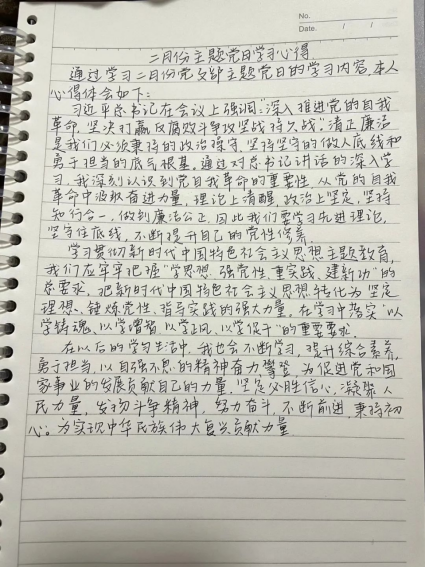 No.
Date. / /
二月份主题党日学习心得
通过学习二月份党支部主题党日的学习内容,本人
心得体会如下:
习近平总书记在会议上强调:"深入推进党的自我
革命,坚决打赢反腐败斗争攻坚战持久战。"清正廉洁
是我们必须秉持的政治操守,坚持坚守的做人底线和
勇于担当的底气根基,通过对总书记讲话的深入学
习,我深刻认识到党自我革命的重要性,从党的自我
革命中汲取奋进力量,理论上清醒,政治上坚定,坚持
知行合一,做到廉洁公正,因此我们要学习先进理论,
坚守住底线,不断提升自己的党性修养。
学习贯彻新时代中国特色社会主义思想主题教育,
我们应牢牢把握"学思想、强党性、重实践、建新功"的
总要求,把新时代中国特色社会主义思想转化为坚定
理想、锤炼党性、指导实践的强大力量,在学习中落实"以
学铸魂,以学增智,以学正风,以学促干"的重要要求。
在以后的学习生活中,我也会不断学习,提升综合素养,
勇于担当,以自强不息的精神奋力攀登,为促进党和国
家事业的发展贡献自己的力量,坚定必胜信心,凝聚人
民力量,发扬斗争精神,努力奋斗,不断前进,秉持初
心。为实现中华民族伟大复兴贡献力量